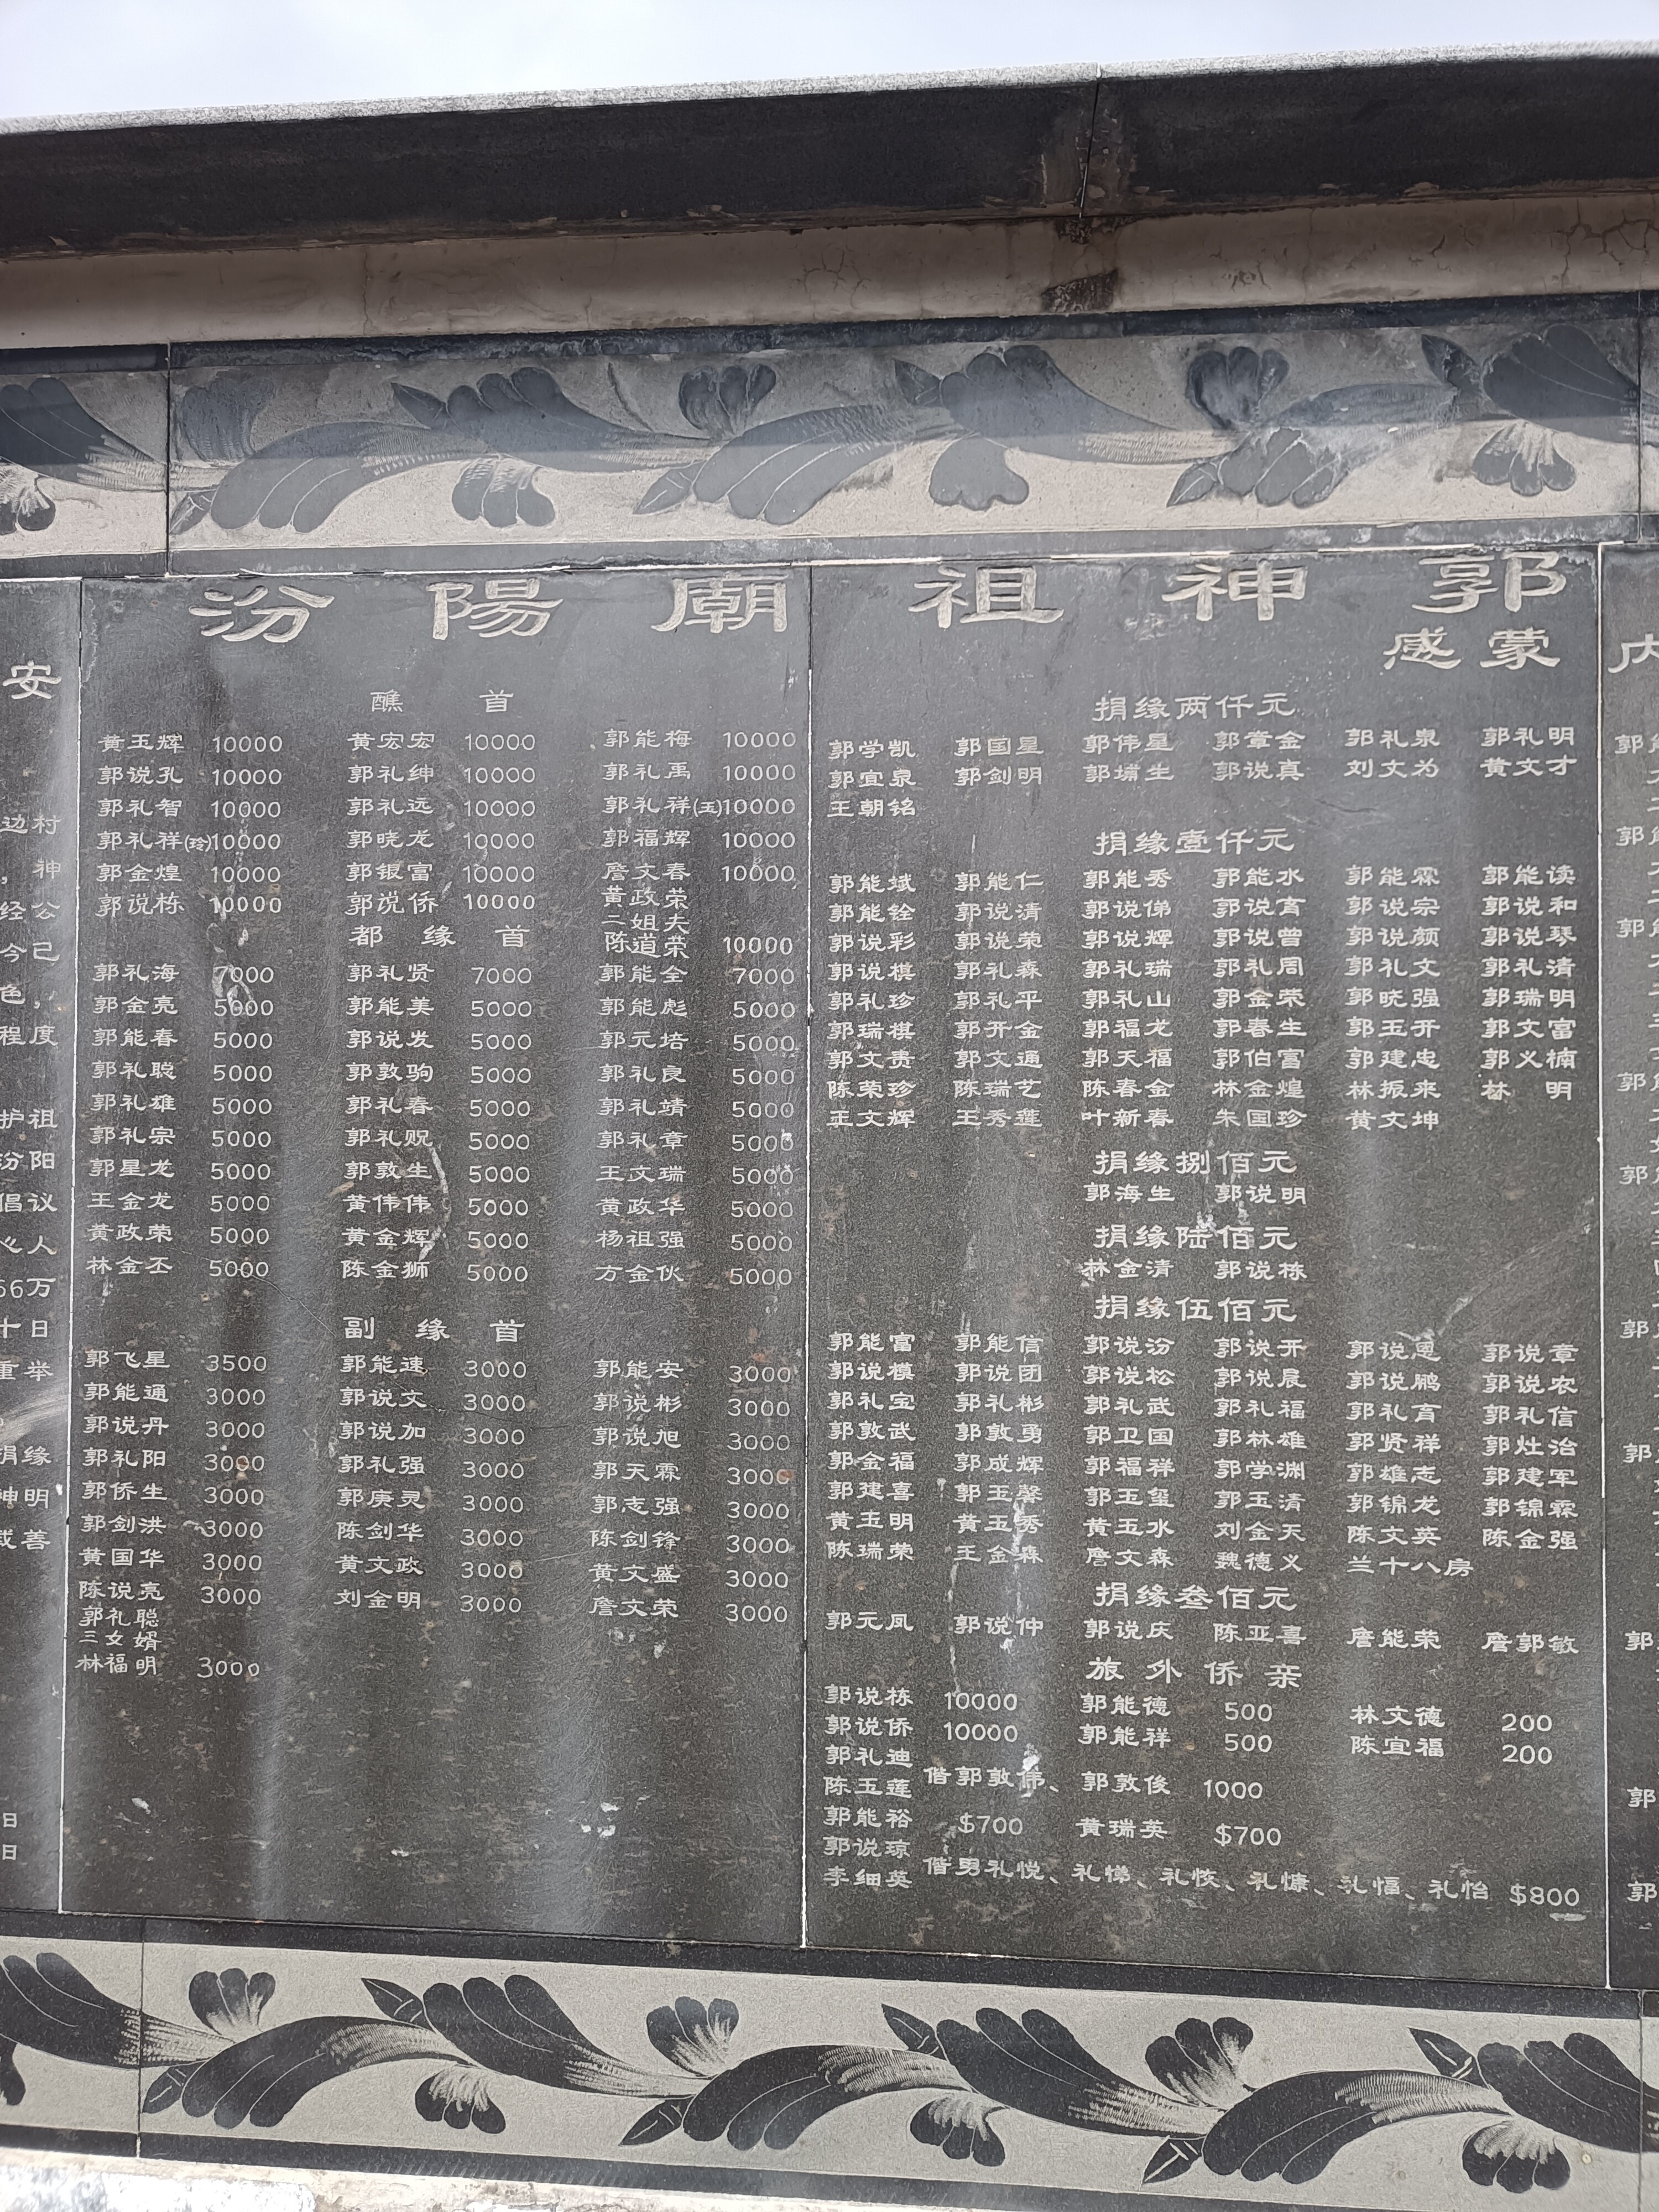 汾陽廟祖神郭
感蒙
醮首
黄玉辉 10000 黄宏宏 10000 郭能梅 10000
郭说孔 10000 郭礼绅 10000 郭礼禹 10000
郭礼智 10000 郭礼远 10000 郭礼祥(玉)10000
郭礼祥(玲)10000 郭晓龙 10000 郭福辉 10000
郭金煌 10000 郭银富 10000 詹文春 10000
郭说栋 10000 郭说侨 10000 黄政荣
二姐夫
都缘首 陈道荣 10000
郭礼海 7000 郭礼贤 7000 郭能全 7000
郭金亮 5000 郭能美 5000 郭能彪 5000
郭能春 5000 郭说发 5000 郭元培 5000
郭礼聪 5000 郭敦驹 5000 郭礼良 5000
郭礼雄 5000 郭礼春 5000 郭礼靖 5000
郭礼宗 5000 郭礼贶 5000 郭礼章 5000
郭星龙 5000 郭敦生 5000 王文瑞 5000
王金龙 5000 黄伟伟 5000 黄政华 5000
黄政荣 5000 黄金辉 5000 杨祖强 5000
林金丕 5000 陈金狮 5000 方金伙 5000
副缘首
郭飞星 3500 郭能速 3000 郭能安 3000
郭能通 3000 郭说文 3000 郭说彬 3000
郭说丹 3000 郭说加 3000 郭说旭 3000
郭礼阳 3000 郭礼强 3000 郭天霖 3000
郭侨生 3000 郭庚灵 3000 郭志强 3000
郭剑洪 3000 陈剑华 3000 陈剑锋 3000
黄国华 3000 黄文政 3000 黄文盛 3000
陈说亮 3000 刘金明 3000 詹文荣 3000
郭礼聪
三女婿
林福明 3000
捐缘两仟元
郭学凯 郭国星 郭伟星 郭章金 郭礼泉 郭礼明
郭宜泉 郭剑明 郭埔生 郭说真 刘文为 黄文才
王朝铭
捐缘壹仟元
郭能斌 郭能仁 郭能秀 郭能水 郭能霖 郭能读
郭能铨 郭说清 郭说俤 郭说育 郭说宗 郭说和
郭说彩 郭说荣 郭说辉 郭说曾 郭说颜 郭说琴
郭说棋 郭礼森 郭礼瑞 郭礼周 郭礼文 郭礼清
郭礼珍 郭礼平 郭礼山 郭金荣 郭晓强 郭瑞明
郭瑞棋 郭开金 郭福龙 郭春生 郭玉开 郭文富
郭文贵 郭文通 郭天福 郭伯富 郭建忠 郭义楠
陈荣珍 陈瑞艺 陈春金 林金煌 林振来 林 明
王文辉 王秀莲 叶新春 朱国珍 黄文坤
捐缘捌佰元
郭海生 郭说明
捐缘陆佰元
林金清 郭说栋
捐缘伍佰元
郭能富 郭能信 郭说汾 郭说开 郭说恩 郭说章
郭说模 郭说团 郭说松 郭说晨 郭说鹏 郭说农
郭礼宝 郭礼彬 郭礼武 郭礼福 郭礼育 郭礼信
郭敦武 郭敦勇 郭卫国 郭林雄 郭贤祥 郭灶治
郭金福 郭成辉 郭福祥 郭学渊 郭雄志 郭建军
郭建喜 郭玉馨 郭玉玺 郭玉清 郭锦龙 郭锦霖
黄玉明 黄玉秀 黄玉水 刘金天 陈文英 陈金强
陈瑞荣 王金森 詹文森 魏德义 兰十八房
捐缘叁佰元
郭元凤 郭说仲 郭说庆 陈亚喜 詹能荣 詹郭敏
旅外侨亲
郭说栋 10000 郭能德 500 林文德 200
郭说侨 10000 郭能祥 500 陈宜福 200
郭礼迪
陈玉莲 偕郭敦伟、郭敦俊 1000
郭能裕 $700 黄瑞英 $700
郭说琼
李细英 偕男礼悦、礼悌、礼恢、礼慷、礼愊、礼怡 $800
安
边村
，神
经公
今已
色，
程度
护祖
汾阳
倡议
心人
66万
十日
重举
捐缘
神明
善
日
日
内